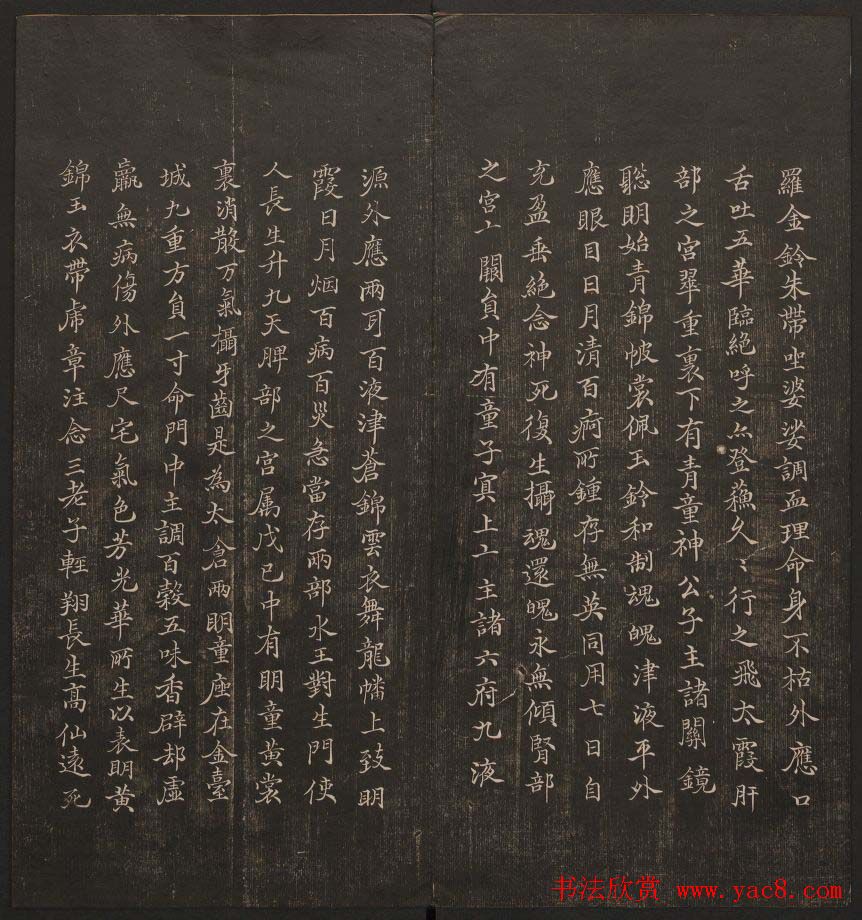 羅金鈴朱帶坐婆娑調血理命身不枯外應口
舌吐五華臨絕呼之亦登蘓久〻行之飛太霞肝
部之宮翠重裏下有青童神公子主諸關鏡
聡明始青錦帔裳佩玉鈴和制魂魄津液平外
應眼目日月清百痾所鍾存無英同用七日自
充盈垂絕念神死復生攝魂還魄永無傾腎部
之宮亠闕負中有童子冥上亠主諸六府九液
源外應兩耳百液津蒼錦雲衣舞龍幡上致明
霞日月烟百病百災急當存兩部水王對生門使
人長生升九天脾部之宮属戊己中有明童黄裳
裏消散万氣攝牙齒是為太倉兩明童座在金臺
城九重方負一寸命門中主調百穀五味香辟却虛
羸無病傷外應尺宅氣色芳光華所生以表明黄
錦玉衣帶虎章注念三老子輕翔長生高仙遠死
书法欣赏 www.yac8.com